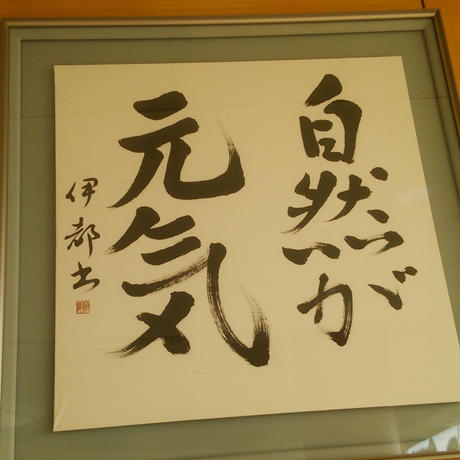 自然が
元気
伊都書